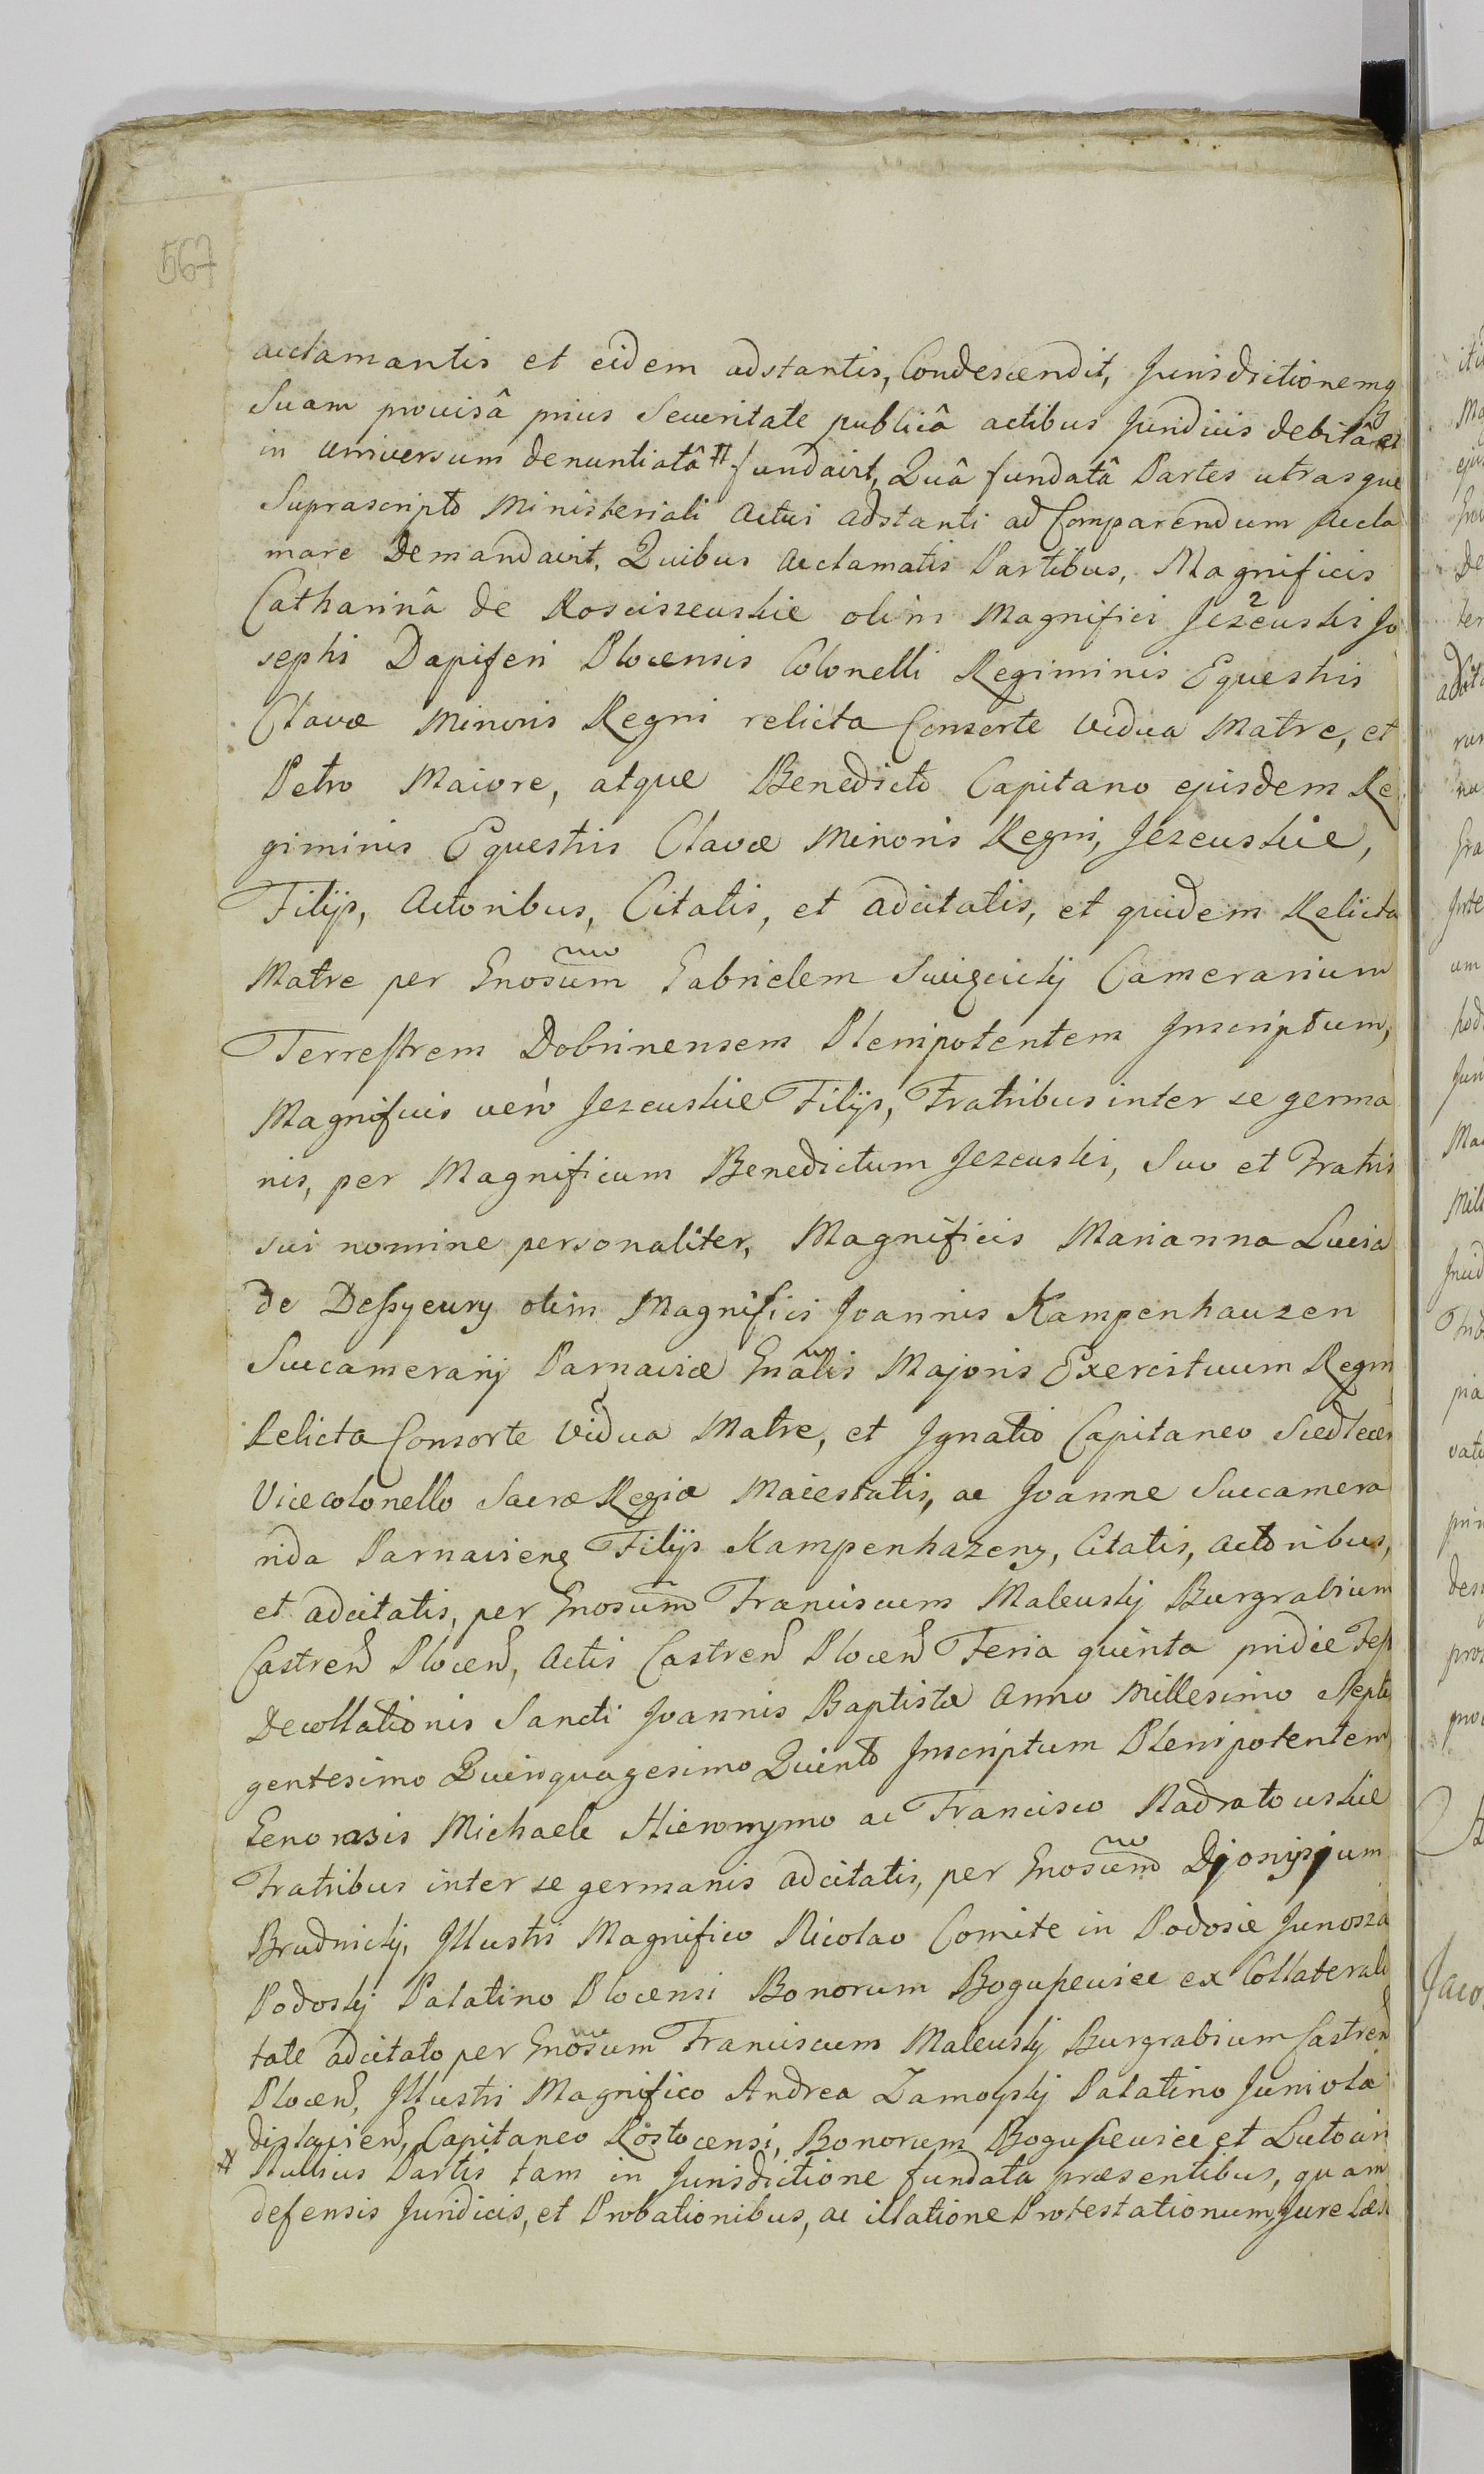 567
acclamantis et eidem adstantis, Condescendit, Jurisdictionemq
Suam provisâ prius Securitate publicâ actibus Juridicis debitâ et
in universum denuntiatâ # fundavit, Quâ fundatâ Partes utrasque
Suprascripto Ministeriali Actui adstanti ad Comparendum accla
mare Demandavit. Quibus acclamatis Partibus, Magnificis
Catharinâ de Kosciszewskie olim Magnifici Jeżewski Jo
sephi Dapiferi Plocensis Colonelli Regiminis Equestris
Clavæ Minoris Regni relicta Consorte vidua Matre, et
Petro Maiore, atque Benedicto Capitano ejusdem Re
giminis Equestris Clavæ Minoris Regni, Jezewskie,
Filijs, Actoribus, Citatis, et adcitatis, et quidem Relicta
Matre per Gnosum Gabrielem Swięcickj Camerarium
Terrestrem Dobrinensem Plenipotentem Inscriptum,
Magnificis verò Jezewskie Filijs, Fratribus inter se germa
nis, per Magnificum Benedictum Jezewski, Suo et Fratris
sui nomine personaliter, Magnificis Marianna Lucia
de Dessyeury olim Magnifici Joannis Kampenhauzen
Succamerarij Parnaviæ Gnalis Majoris Exercituum Regni
Relicta Consorte vidua Matre, et Ignatio Capitaneo Siedlecen
Vicecolonello Sacræ Regiæ Maiestatis, ac Joanne Succamera
rida Parnavien Filijs Kampenhazeny, Citatis, Actoribus,
et adcitatis, per Gnosum Franciscum Malewskj Burgrabium
Castren Plocen, Actis Castren Plocen Feria quinta pridie Fest
Decollationis Sancti Joannis Baptistæ Anno Millesimo Septin
gentesimo Quinquagesimo Quinto Inscriptum Plenipotentem
Generosis Michaele Hieronymo ac Francisco Nadratowskie
Fratribus inter se germanis adcitatis, per Gnosum Djonysjum
Brudnickj, Illustri Magnifico Nicolao Comite in Podosie Junosza
Podoskj Palatino Plocensi Bonorum Bogupewice ex Collaterali
tate adcitato per Gnosum Franciscum Malewskj Burgrabium Castren
Plocen, Illustri Magnifico Andrea Zamoyskj Palatino Junivla
dislavien, Capitaneo Rostocensi, Bonorum Bogupewice et Lutocin
# Nullius Partis tam in Jurisdictione fundata præsentibus, quam
defensis Juridicis, et Probationibus, ac illatione Protestationum, Jure Læs